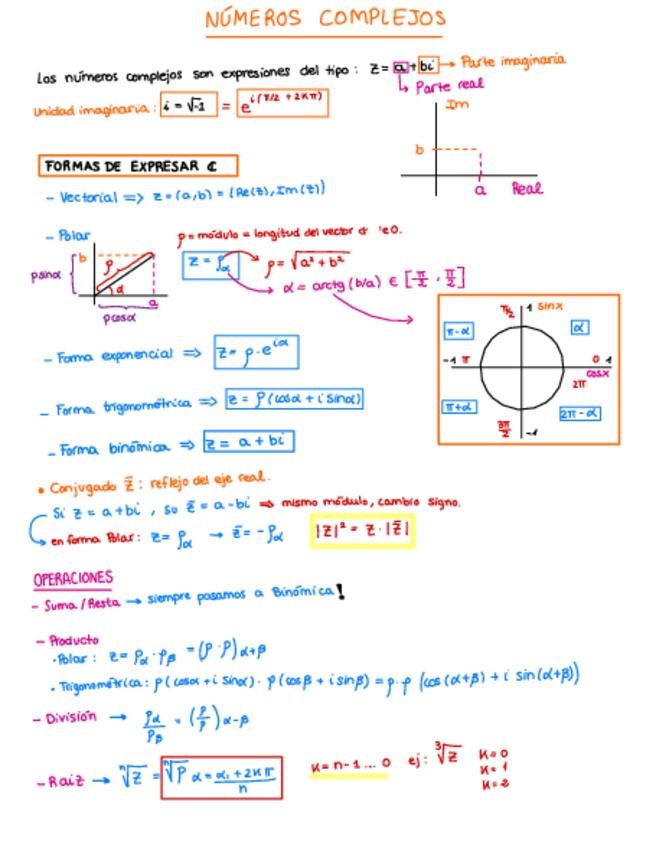 NÚMEROS COMPLEJOS
Los números complejos son expresiones del tipo: z = a + bi → Parte imaginaria
↳ Parte real
Unidad imaginaria: i = √-1 = e^i(π/2 + 2kπ)
Im
b
a Real
FORMAS DE EXPRESAR ℂ
- Vectorial => z = (a,b) = (Re(z), Im(z))
- Polar
ρ = módulo = longitud del vector
z = ρα
ρ = √a² + b²
α = arctg (b/a) ∈ [π/2, π/2]
b
ρ
α
a
ρ sinα
ρ cosα
π/2 1 sinx
π-α
α
-1 π
0 1
cosx
2π
π+α
2π-α
3π/2 -1
- Forma exponencial => z = ρ·e^iα
- Forma trigonométrica => z = ρ(cosα + i sinα)
- Forma binómica => z = a + bi
• Conjugado z̄: reflejo del eje real.
Si z = a+bi, su z̄ = a-bi => mismo módulo, cambio signo.
en forma Polar: z = ρα → z̄ = -ρα
|z|² = z·|z̄|
OPERACIONES
- Suma/Resta → siempre pasamos a Binómica!
- Producto
· Polar: z = ρα·ρβ = (ρ·ρ)α+β
· Trigonométrica: ρ(cosα + i sinα)·ρ(cosβ + i sinβ) = ρ·ρ (cos(α+β) + i sin(α+β))
- División → ρα/ρβ = (ρ/ρ)α-β
- Raiz → ⁿ√z = ⁿ√ρ α = α1 + 2kπ/n
k = n-1 ... 0 ej: ³√z k=0
k=1
k=2